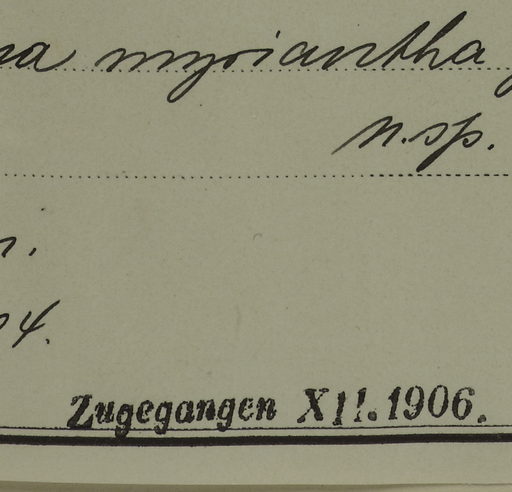 myriantha
n.sp.
4.
Zugegangen XII. 1906.